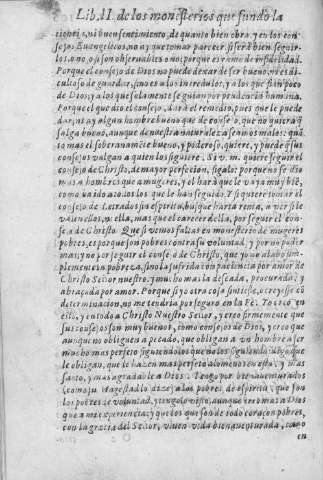 Lib. II. de los monesterios que fundò la
ciones, ni buen sentimiento, de quanto bien obra, y en los con
sejos Euangelicos, no ay que tomar parecer, si serà bien seguir-
los, o no, o si son obseruables o no; porque es ramo de infidelidad.
Porque el consejo de Dios no puede dexar de ser bueno, ni es di-
ficultoso de guardar, sino es a los incredulos, y a los que fian poco
de Dios; y a los que solamente se guian por prudencia humana.
Porque el que dio el consejo, darà el remedio, pues que le puede
dar; ni ay algun hombre bueno que dè consejo, que no quiera q̃
salga bueno, aunque de nuestra naturaleza seamos malos: quã
to mas el soberanamẽte bueno, y poderoso, quiere, y puede q̃ sus
consejos valgan a quien los siguiere. Si v. m. quiere seguir el
consejo de Christo, de mayor perfeccion, sigalo: porque no se dio
mas a hombres que a mugeres, y el harà que le vaya muy biẽ,
como ha ido a todos los que le han seguido. Y si quiere tomar el
consejo de Letrados sin espiritu, busque harta renta, a ver si le
valen ellos, ni ella, mas que el carecer della, por seguir el conse-
jo de Christo. Que si vemos faltas en monesterio de mugeres
pobres, es porque son pobres contra su voluntad, y por no poder
mas; y no por seguir el consejo de Christo, que yo no alabo sim-
plemente la pobreza, sino la sufrida con paciencia por amor de
Christo Señor nuestro, y mucho mas la deseada, procurada, y
abraçada por amor. Porque si yo otra cosa sintiesse, o creyesse cõ
determinacion, no me tendria por seguro en la Fè. Yo creo en
esto, y en todo a Christo Nuestro Señor, y creo firmemente que
sus consejos son muy buenos, como consejos de Dios, y creo que
aunque no obliguen a pecado, que obligan a vn hombre a ser
mucho mas perfeto siguiendolos que no los siguiendo: digo que
le obligan, que le hazen mas perfeto a lo menos en esto; y mas
santo, y mas agradable a Dios. Tengo por bienauenturados
(como su Magestad lo dize) a los pobres de espiritu, que son
los pobres de voluntad, y tengolo visto, aunque creo mas a Dios
que a mi experiencia; y que los que son de todo coraçon pobres,
con la gracia del Señor, viuen vida bienauenturada, como
en